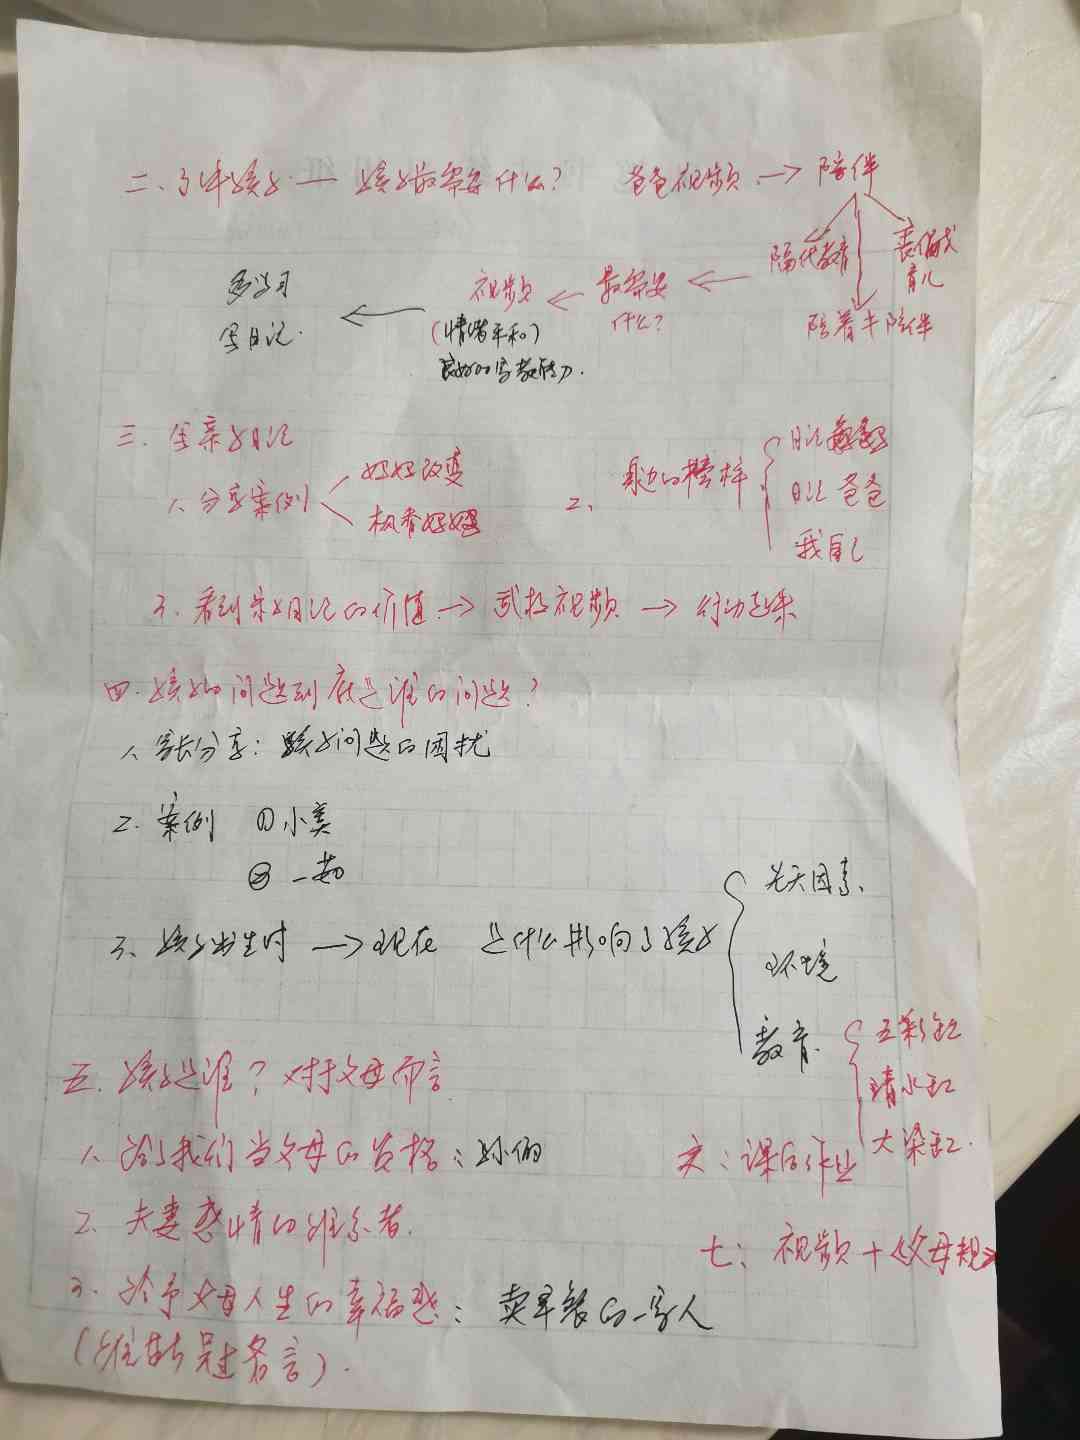 二、了解孩子 — 孩子最需要什么? 爸爸视频 → 陪伴
隔代教育
育儿
陪着≠陪伴
最需要
什么?
视频
(情绪平和)
良好的家教能力.
多学习
写日记.
三、写亲子日记
1、分享案例
妈妈改变
枫香妈妈
2、身边的榜样
日记
日记 爸爸
我自己
3、看到亲子日记的价值 → 武松视频 → 行动起来
四、孩子的问题到底是谁的问题?
1、家长分享: 孩子问题的困扰
2、案例 ①小奕
② 一茹
3、孩子出生时 → 现在 是什么影响了孩子
先天因素、
环境
教育.
五彩缸
清水缸
大染缸.
五、孩子是谁? 对于父母而言
1、给了我们当父母的资格:
2、夫妻感情的维系者.
3、给予父母人生的幸福感: 卖早餐的一家人
六:课后作业
七: 视频+《父母规》